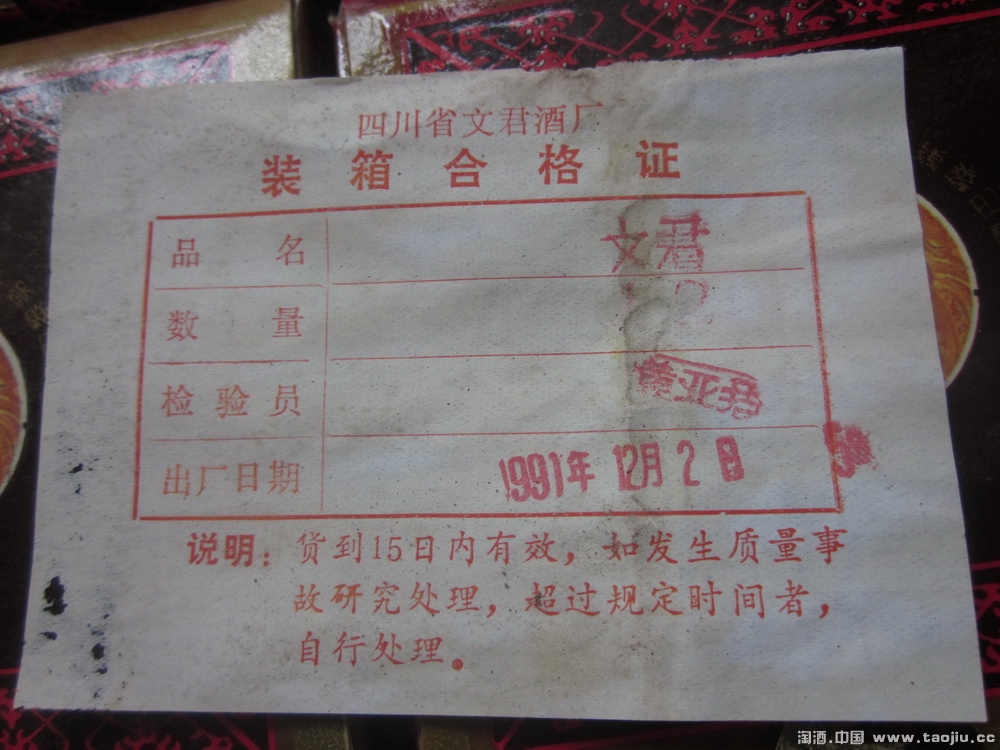 四川省文君酒厂
装箱合格证
品名 文君
数量
检验员
出厂日期 1991年 12月 2日
说明：货到15日内有效，如发生质量事
故研究处理，超过规定时间者，
自行处理。
淘酒.中国 www.taojiu.cc